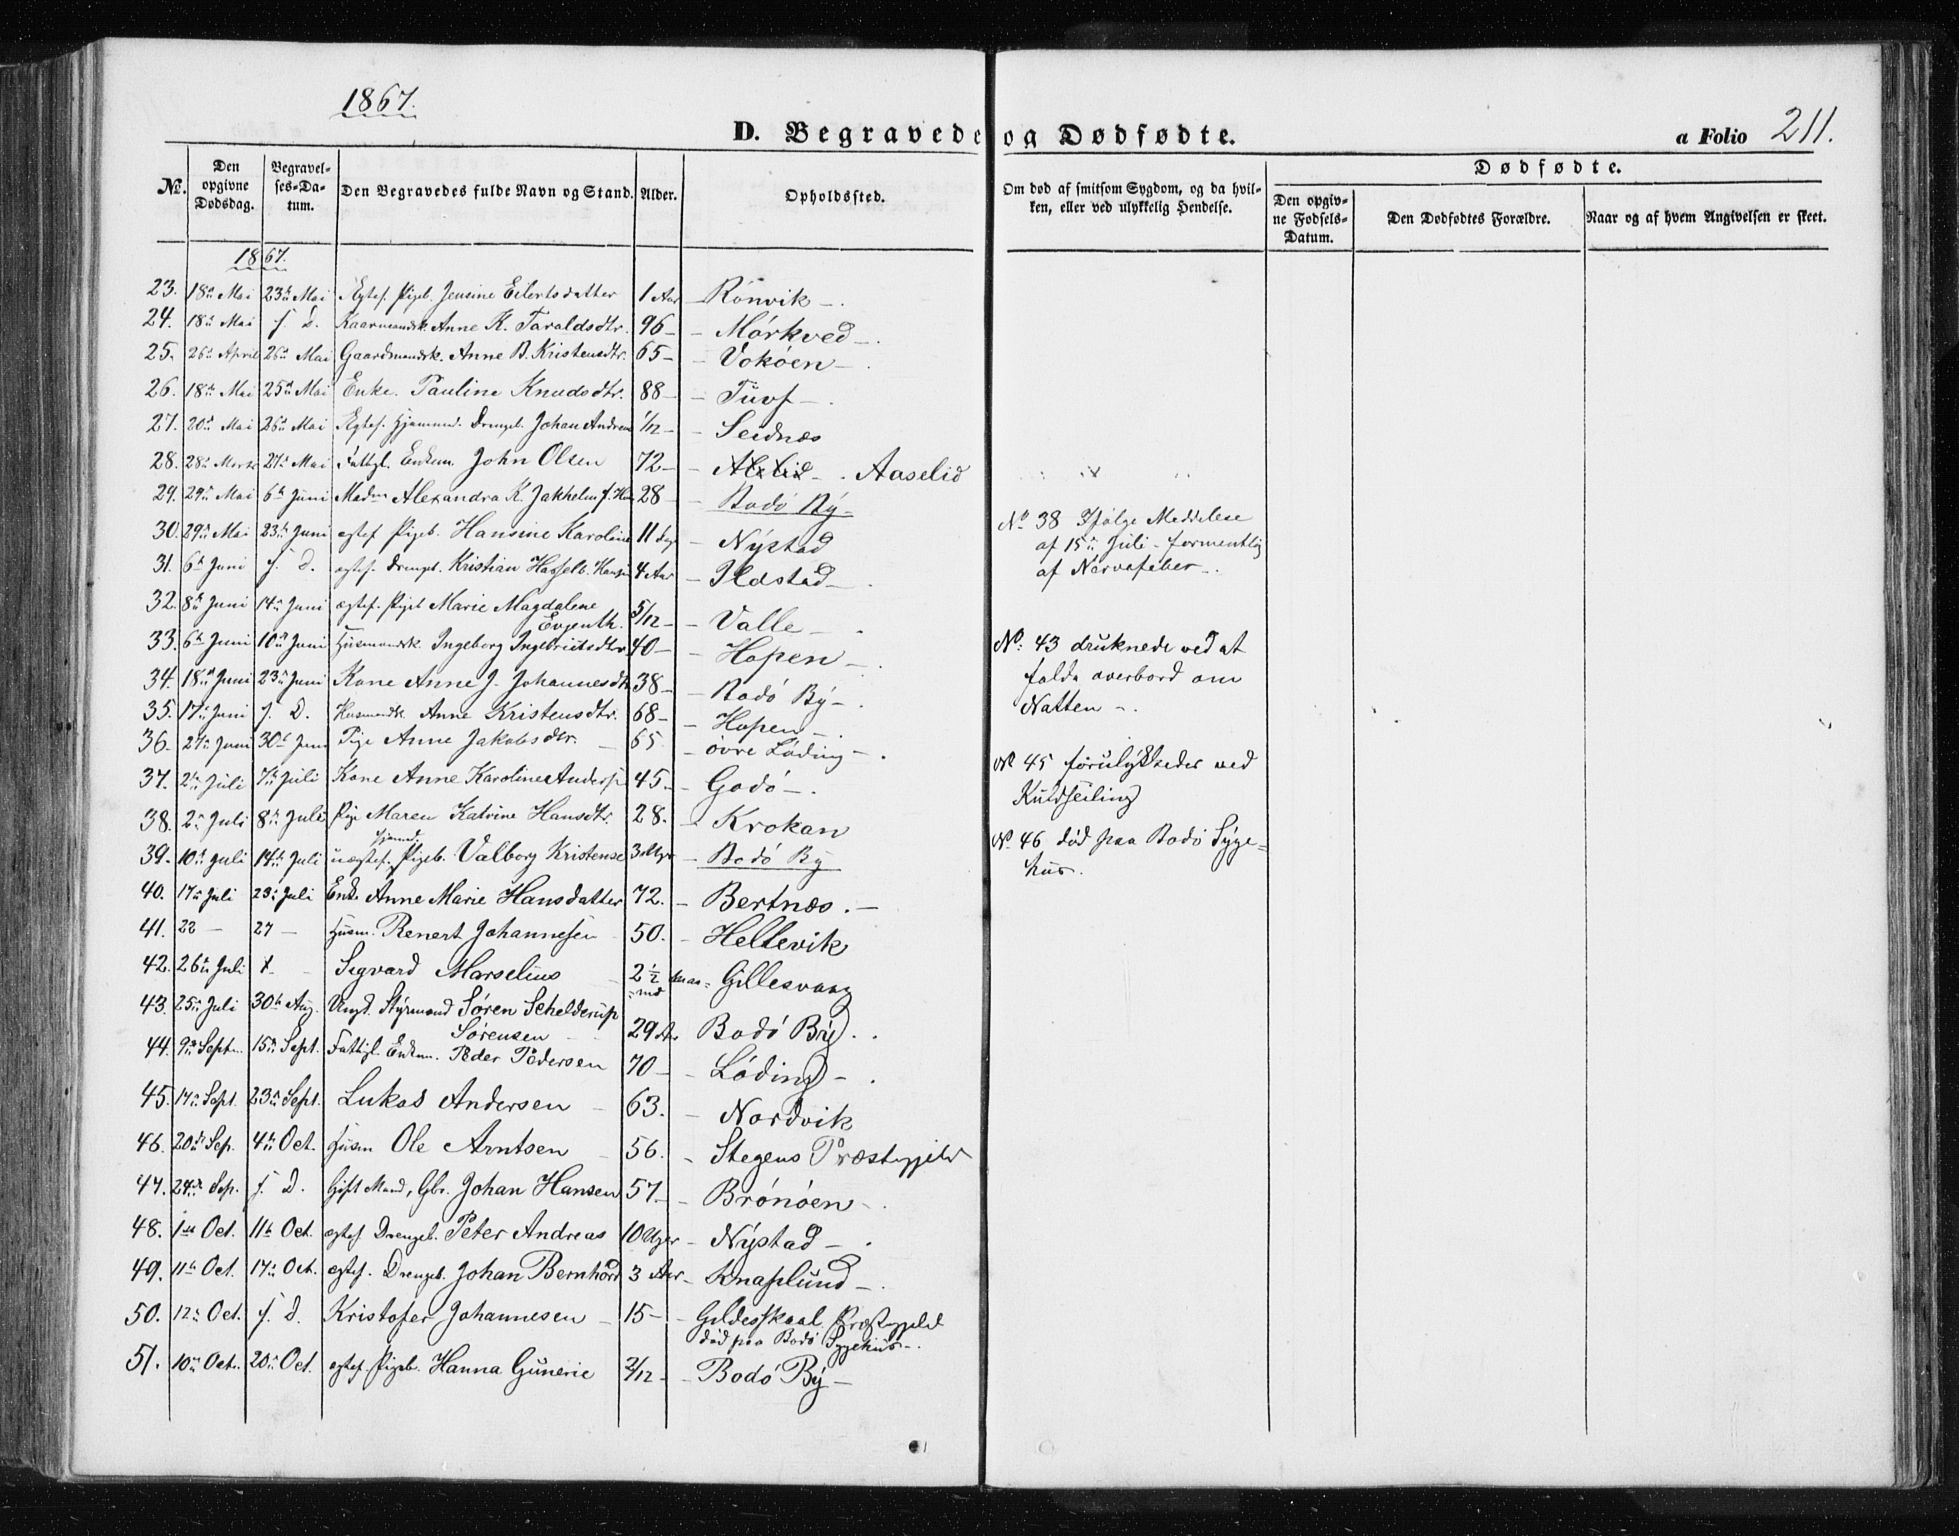 1867.
D. Begravede og Dødfødte.
a Folio 211.
No. Den opgivne Dødsdag. Begravelses-Datum. Den Begravedes fulde Navn og Stand. Alder. Opholdssted. Om død af smitsom Sygdom, og da hvilken, eller ved ulykkelig Hendelse. Dødfødte. Den opgivne Fødsels-Datum. Den Dødfødtes Forældre. Naar og af hvem Angivelsen er skeet.
1867.
23. 18de Mai 23de Mai Ægtef. Pigeb. Jensine Eilertsdatter 1 Aar Rönvik -.
24. 18de Mai s. D. Kaarmandsk. Anne K. Taraldsdtr. 96 - - Mörkved -.
25. 26de April 26de Mai Gaardmandsk. Anne B. Kristensdtr. 65 - - Voköen -.
26. 18de Mai 25de Mai Enke. Pauline Knudsdtr. 88 - - Tuvf -.
27. 20de Mai 26de Mai Ægtef. Hjemmed. Drengeb. Johan Andreas 1/12 - - Seidnæs
28. 28de Marts 27de Mai Fattigl. Enkem. John Olsen 72 - - Aaselid
29. 29de Mai 6te Juni Madm Alexandra K. Jakhelm f. 28 - Bodö By -
30. 29de Mai 23de Juni ægtef Pigeb. Hansine Karoline 11 dage - Nystad
31. 6te Juni s. D. ægtef. Drengeb. Kristian Hasselb. Hansen 4 Aar - Ildstad -.
32. 8de Juni 14de Juni ægtef. Pigeb Marie Magdalene Evjenth. 5/12 - - Valle -.
33. 6te Juni 10de Juni Husmandsk. Ingeborg Ingebrigtsdtr 40 - - Hopen -.
34. 18de Juni 23de Juni Kone Anne J. Johannesdtr 38 - - Bodö By -.
35. 17de Juni s. D. Husmandk. Anne Kristensdtr. 68 - - Hopen -.
36. 27de Juni 30te Juni Pige Anne Jakobsdtr. 65. - övre Löding -.
37. 2den Juli 7de Juli Kone Anne Karoline Andersd 45 - - Godö -.
38. 2den Juli 8de Juli Pige Maren Katrine Hansdtr. 28. - Krokan
39. 10de Juli 14de Juli uægtef. hjemd. Pigeb. Valborg Kristense 3 Uger - Bodö By
40. 17de Juli 23de Juli Enke Anne Marie Hansdatter 72. - Bertnæs. -
41. 22 - 27 - Husm. Renert Johannesen 50. - Hellevik
42. 26de Juli Sigvard Marselius 2 1/2 Gillesvaag
43. 25de Juli 30te Aug. Ungk. Styrmand Sören Schelderup Sörensen 29 Aar Bodö By. .
44. 9de Septr. 15de Sept. Fattigl. Enkem. Peder Pedersen 70 - - Löding -.
45. 17de Sept. 23de Sept. Lukas Andersen 63. - Nordvik
46. 20de Sep. 4de Oct. Husm Ole Arntsen 56. - Stegens Præstegjeld
47. 24de Sep. s. D. Gift Mand, Gbr. Johan Hansen 57. - Brönöen -.
48. 1ste Oct. 11te Oct. ægtef. Drengeb. Peter Andreas 10 Uger - Nystad -.
49. 11te Oct. 17de Oct. ægtef. Drengeb. Johan Bernhard 3 Aar - Knaplund -.
50. 12te Oct. s. D. Kristofer Johannesen 15 - - Gildesskaal Præstegjeld död paa Bodö Sygehus -.
51. 10de Oct. 20de Oct. ægtef. Pigeb. Hanna Gunerie 2/12 - - Bodö By -
No 38 Ifölge Meddelese
af 15de Juli - formentlig
af Nervefeber -.
No: 43 druknede ved at
falde overbord om
Natten -.
No 45 forulykkedes ved
Kuldseiling
No 46 död paa Bodö Syge=
hus.